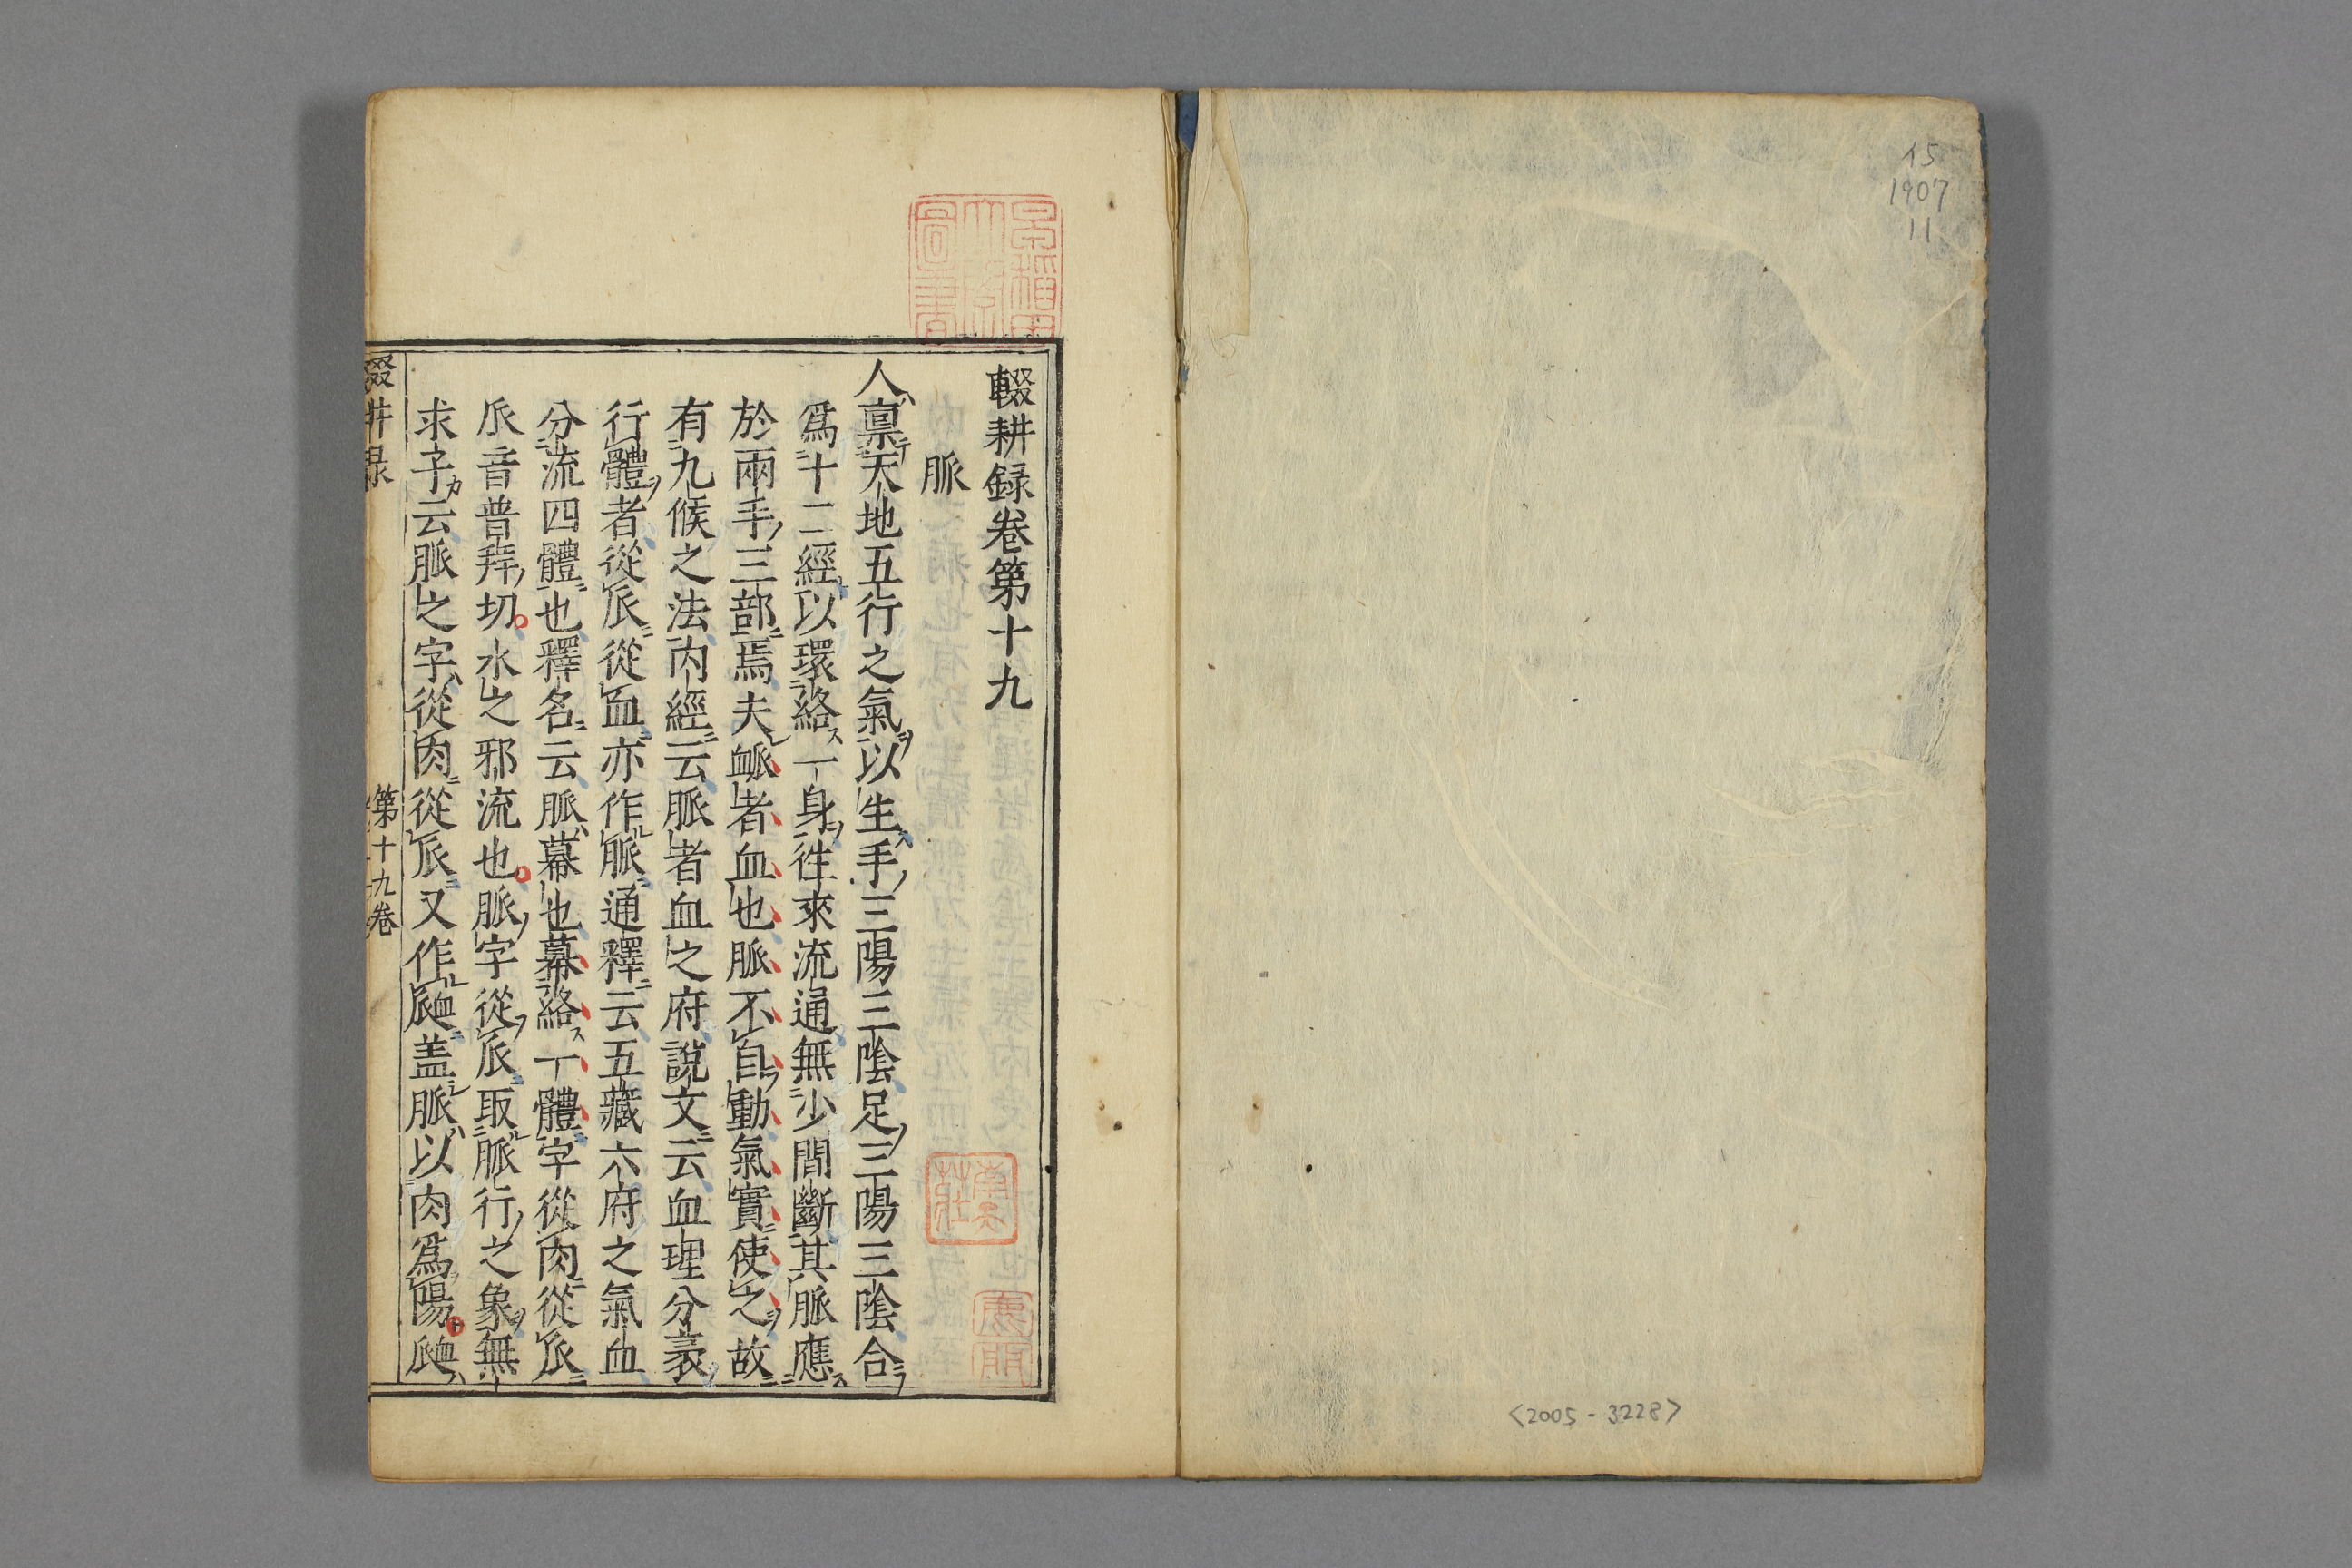 15
1907
11
<2005-3228>
輟耕録卷第十九
脈
人稟天地五行之氣以生手三陽三陰足三陽三陰合
爲十二經以環絡一身徃來流通無少間斷其脈應
於兩手三部焉夫衇者血也脈不自動氣實使之故
有九候之法内經云脈者血之府說文云血理分衺
行體者從𠂢從血亦作脈通釋云五藏六府之氣血
分流四體也釋名云脈幕也幕絡一體字從肉從𠂢
𠂢音普拜切水之邪流也脈字從𠂢取脈行之象無
求子云脈之字從肉從𠂢又作䘑盖脈以肉爲陽䘑
第十九卷